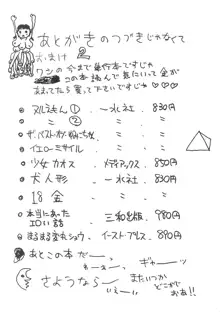 あとがきのつづきじゃなくて
おまけ
ワシの今まで出た単行本ですじゃ
この本読んで気にいって金が
あまってたら買って下さいですじゃ♡♡♡
● ヌルえもん ① 一水社 830円
● 〃 ② 〃 〃
● ザ・ベスト 〃 〃
● イエローミサイル 〃 〃
● 少女カオス メディアックス 850円
● 犬人形 一水社 830円
● 18金 〃 〃
● 本当にあったエロい話 三和出版 980円
● まるまる変丸ショウ イースト・プレス 890円
● あとこの本だー。 ギャーッ
さようならー またいつか
どこかで
おあ!!